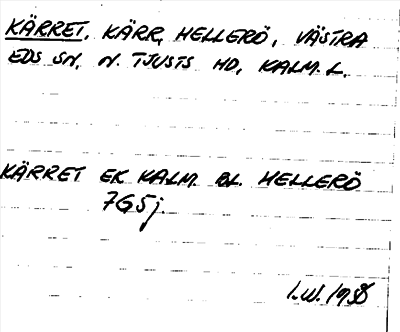 KÄRRET, KÄRR, HELLERÖ, VÄSTRA
EDS SN, N. TJUSTS HD, KALM. L.
KÄRRET EK KALM. BL. HELLERÖ
7G5j.
I.W.